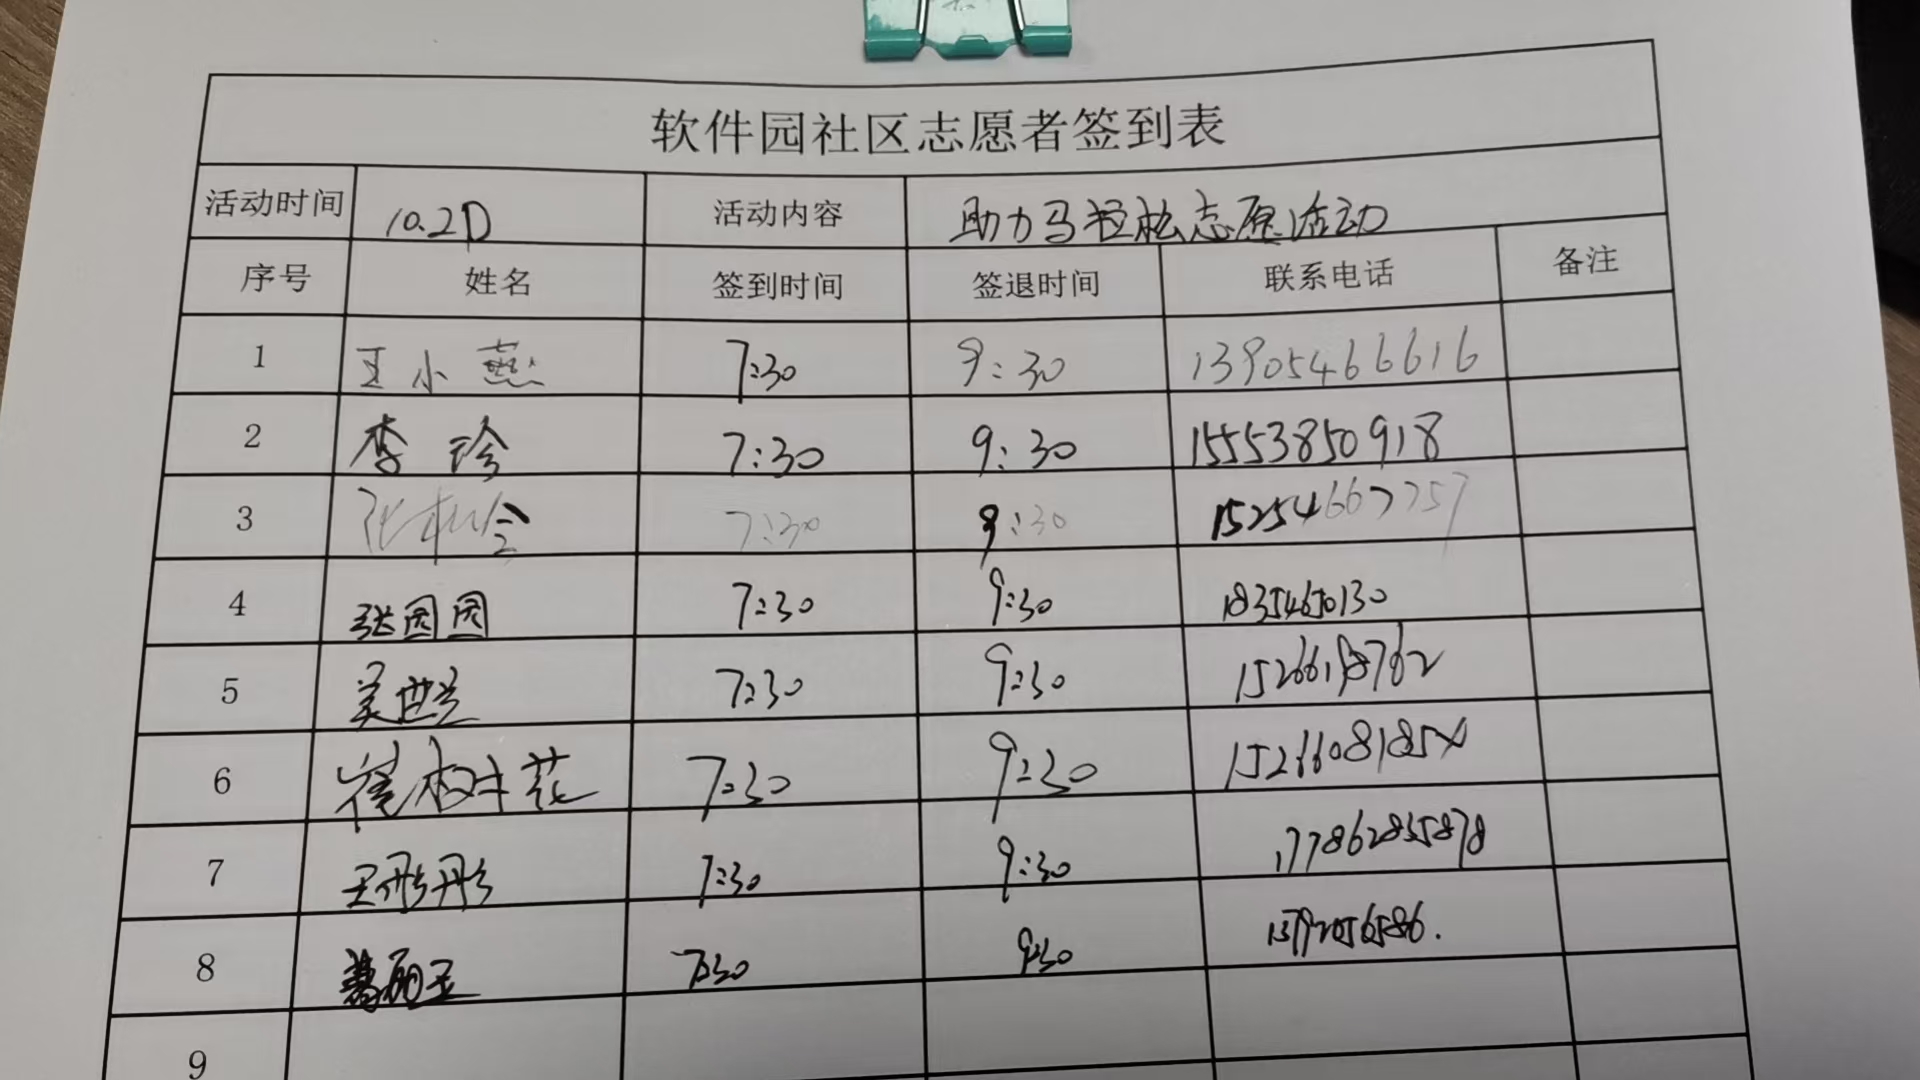 软件园社区志愿者签到表
活动时间 10.20 活动内容 助力马拉松志愿活动
序号 姓名 签到时间 签退时间 联系电话 备注
1 王小燕 7:30 9:30 13905466616
2 李珍 7:30 9:30 15553850918
3 7:30 9:30 15254667757
4 张园园 7:30 9:30 18354650130
5 7:30 9:30 15266198762
6 崔树花 7:30 9:30 15266081854
7 王彤彤 7:30 9:30 177862835878
8 葛丽玉 7:30 9:30
9